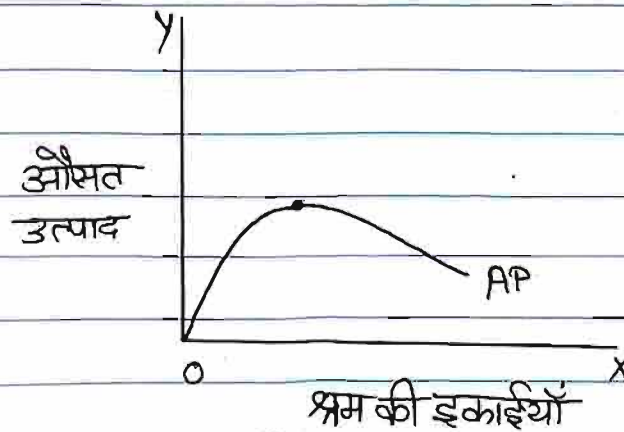 Y
औसत
उत्पाद
AP
O
X
श्रम की इकाईयाँ